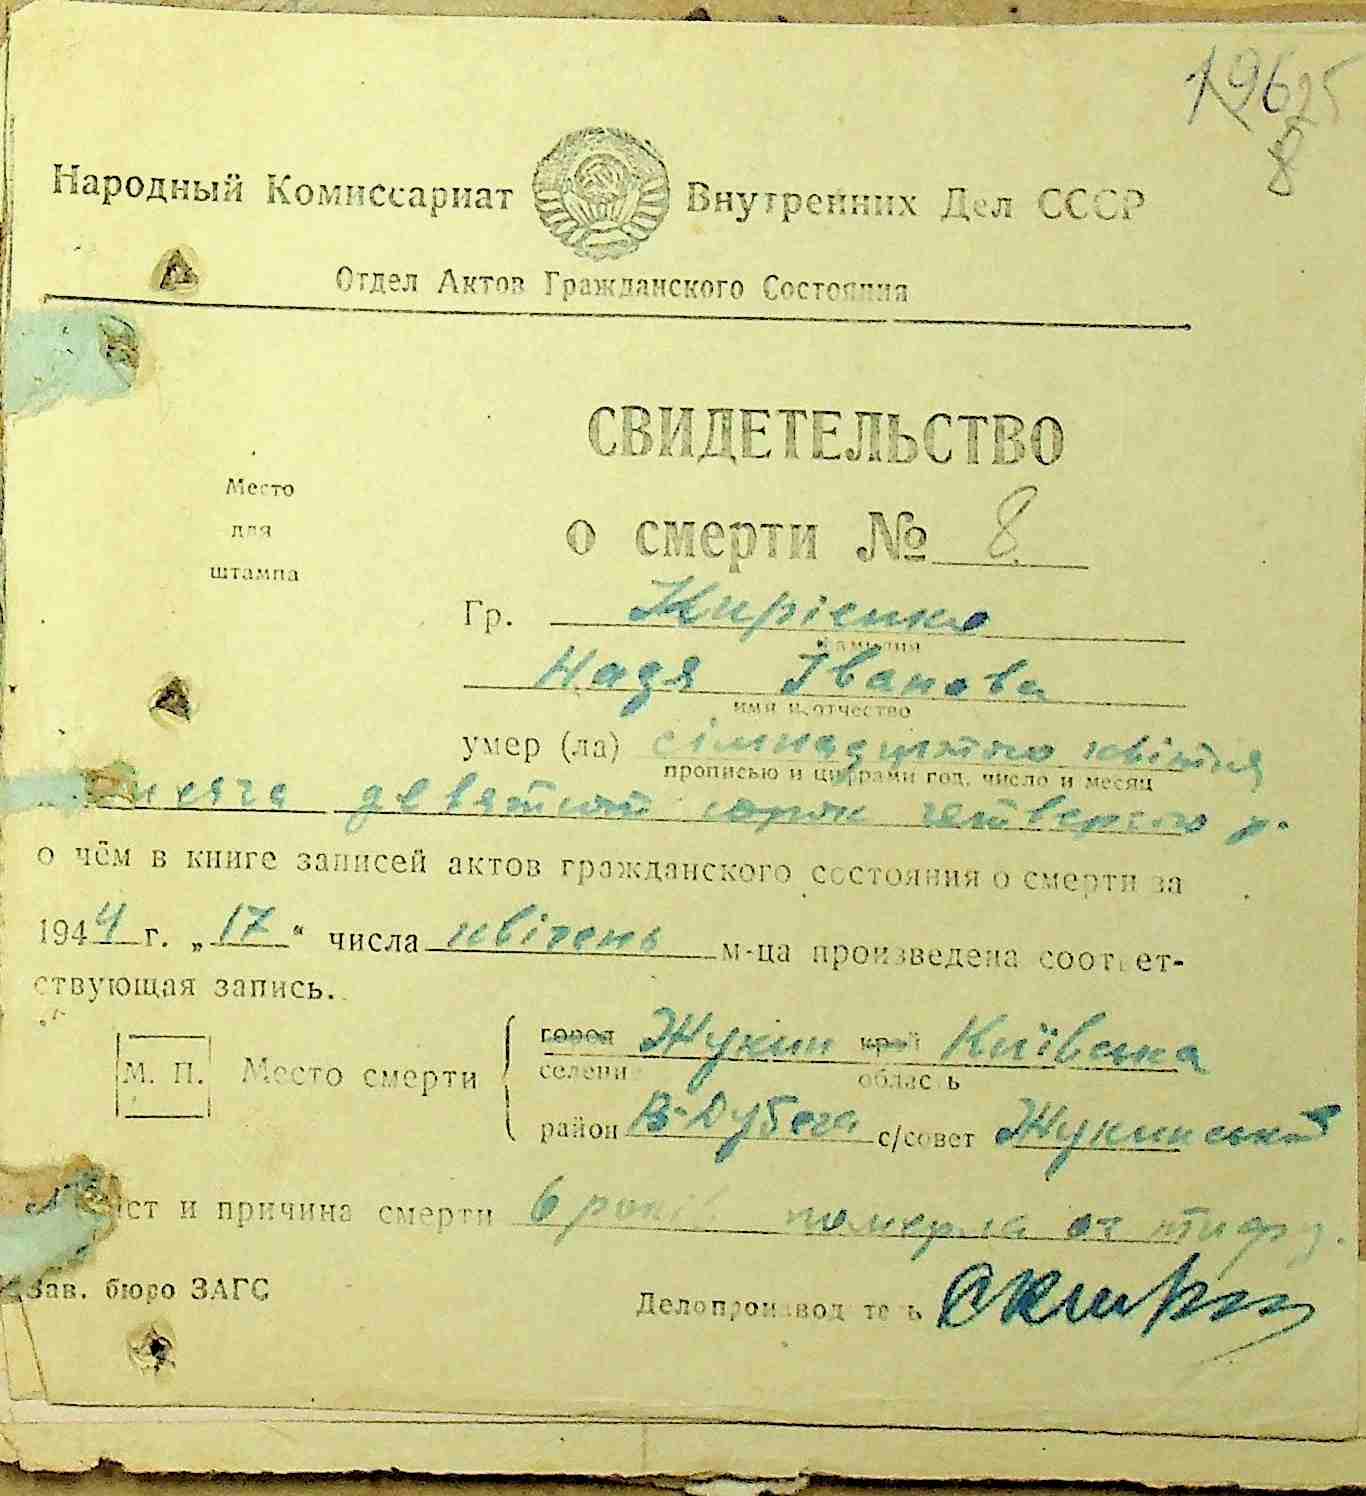 19625
8
Народный Комиссариат Внутренних Дел СССР
Отдел Актов Гражданского Состояния
СВИДЕТЕЛЬСТВО
Место
для
штампа
о смерти № 8
Гр. Кирієнко
фамилия
Надя Іванова
имя и отчество
умер (ла) сімнадцятого квітня
прописью и цифрами год, число и месяц
девятсот сорок четверого р.
о чём в книге записей актов гражданского состояния о смерти за
1944 г. „17“ числа квітень м-ца произведена соответ-
ствующая запись.
М. П. Место смерти
город Жукин край Київська
селение область
район В-Дубеча с/совет Жукинський
и причина смерти 6 років померла от тифу.
Зав. бюро ЗАГС
Делопроизводитель